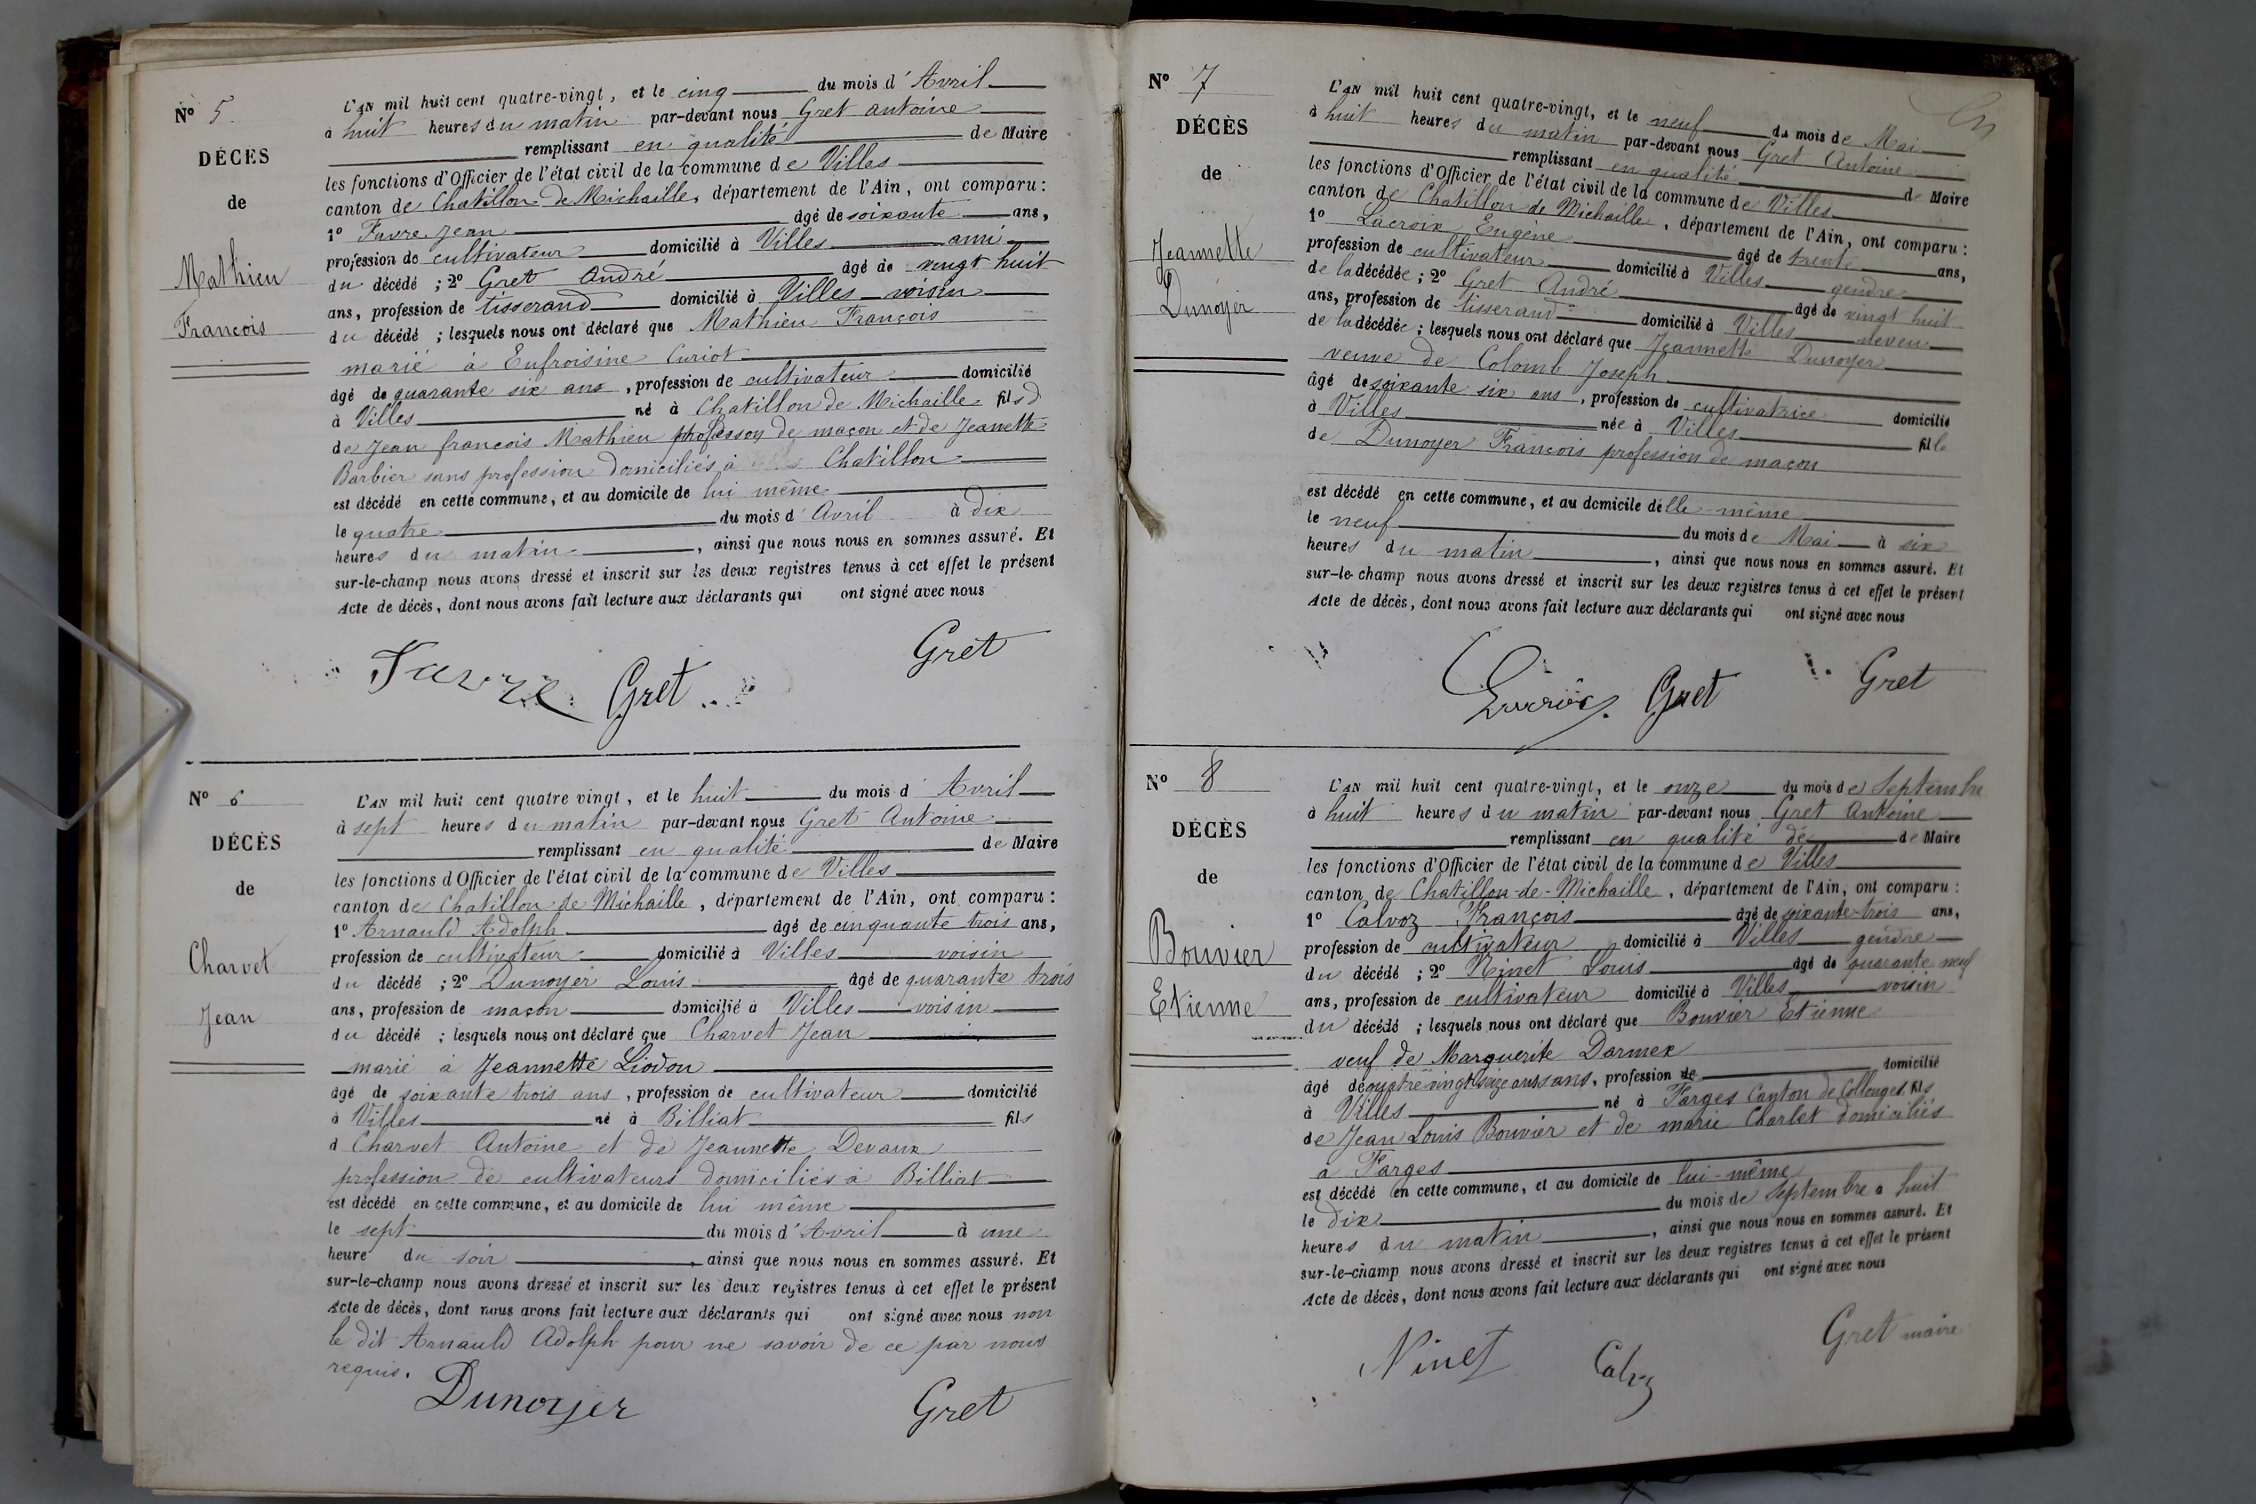 N° 5
DÉCÈS
de
Mathieu
François
L'AN mil huit cent quatre-vingt, et le cinq du mois d'Avril
à huit heures du matin par-devant nous Gret antoine
remplissant en qualité de Maire
les fonctions d'Officier de l'état civil de la commune de Villes
canton de Chatillon de Michaille, département de l'Ain, ont comparu :
1° Favre Jean âgé de soixante ans,
profession de cultivateur domicilié à Villes ami
du décédé ; 2° Gret André âgé de vingt huit
ans, profession de tisserand domicilié à Villes voisin
du décédé ; lesquels nous ont déclaré que Mathieu François
marié à Eufroisine Curiot
âgé de quarante six ans, profession de cultivateur domicilié
à Villes né à Chatillon de Michaille fils d
de Jean françois Mathieu profession de maçon et de Jeanette
Barbier sans profession domiciliés à Chatillon
est décédé en cette commune, et au domicile de lui même
le quatre du mois d'Avril à dix
heures du matin, ainsi que nous nous en sommes assuré. Et
sur-le-champ nous avons dressé et inscrit sur les deux registres tenus à cet effet le présent
Acte de décès, dont nous avons fait lecture aux déclarants qui ont signé avec nous
Favre Gret Gret
N° 6
DÉCÈS
de
Charvet
Jean
L'AN mil huit cent quatre vingt, et le huit du mois d'Avril
à sept heures du matin par-devant nous Gret Antoine
remplissant en qualité de Maire
les fonctions d'Officier de l'état civil de la commune de Villes
canton de Chatillon de Michaille, département de l'Ain, ont comparu :
1° Arnauld Adolph âgé de cinquante trois ans,
profession de cultivateur domicilié à Villes voisin
du décédé ; 2° Dunoyer Louis âgé de quarante trois
ans, profession de maçon domicilié à Villes voisin
du décédé ; lesquels nous ont déclaré que Charvet Jean
marié à Jeannette Liodon
âgé de soixante trois ans, profession de cultivateur domicilié
à Villes né à Billiat fils
d Charvet Antoine et de Jeannette Devaux
profession de cultivateurs domiciliés à Billiat
est décédé en cette commune, et au domicile de lui même
le sept du mois d'Avril à une
heure du soir, ainsi que nous nous en sommes assuré. Et
sur-le-champ nous avons dressé et inscrit sur les deux registres tenus à cet effet le présent
Acte de décès, dont nous avons fait lecture aux déclarants qui ont signé avec nous non
le dit Arnauld Adolph pour ne savoir de ce par nous
requis.
Dunoyer Gret
N° 7
DÉCÈS
de
Jeannette
Dunoyer
L'AN mil huit cent quatre-vingt, et le neuf du mois de Mai
à huit heures du matin par-devant nous Gret Antoine
remplissant en qualité de Maire
les fonctions d'Officier de l'état civil de la commune de Villes
canton de Chatillon de Michaille, département de l'Ain, ont comparu :
1° Lacroix Eugène âgé de trente ans,
profession de cultivateur domicilié à Villes gendre
de la décédée ; 2° Gret André âgé de vingt huit
ans, profession de tisserand domicilié à Villes neveu
de la décédée ; lesquels nous ont déclaré que Jeannette Dunoyer
veuve de Colomb Joseph
âgé de soixante six ans, profession de cultivatrice domicilié
à Villes née à Villes fille
de Dunoyer François profession de maçon
est décédé en cette commune, et au domicile delle même
le neuf du mois de Mai à six
heures du matin, ainsi que nous nous en sommes assuré. Et
sur-le-champ nous avons dressé et inscrit sur les deux registres tenus à cet effet le présent
Acte de décès, dont nous avons fait lecture aux déclarants qui ont signé avec nous
Gret Gret
N° 8
DÉCÈS
de
Bouvier
Etienne
L'AN mil huit cent quatre-vingt, et le onze du mois de Septembre
à huit heures du matin par-devant nous Gret Antoine
remplissant en qualité de de Maire
les fonctions d'Officier de l'état civil de la commune de Villes
canton de Chatillon-de-Michaille, département de l'Ain, ont comparu :
1° Calvoz François âgé de soixante-trois ans,
profession de cultivateur domicilié à Villes gendre
du décédé ; 2° Ninet Louis âgé de quarante neuf
ans, profession de cultivateur domicilié à Villes voisin
du décédé ; lesquels nous ont déclaré que Bouvier Etienne
veuf de Marguerite Darmex
âgé de quatre vingt seize ans ans, profession de domicilié
à Villes né à Farges Canton de Collonges fils
de Jean Louis Bouvier et de marie Charlet domiciliés
à Farges
est décédé en cette commune, et au domicile de lui-même
le dix du mois de septembre à huit
heures du matin, ainsi que nous nous en sommes assuré. Et
sur-le-champ nous avons dressé et inscrit sur les deux registres tenus à cet effet le présent
Acte de décès, dont nous avons fait lecture aux déclarants qui ont signé avec nous
Ninet Calvoz Gret maire